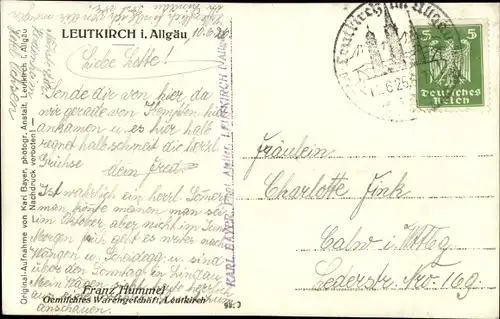 LEUTKIRCH i. Allgäu
10.6.26
Liebe Lotte!
Sende dir von hier, da
wir gerade von Kempten hier
ankamen u. es hier halb
regnet halb schneit die herzl.
Grüsse
dein Fred
Ist wahrlich ein herrl. Somer
man könte meinen man sei
im Oktober, aber nicht im Juni
Morgen früh geht es weiter nach
Wangen u. Scheidegg u. sind
über den Sonntag in Lindau
anschauen.
Franz Hummel
Gemischtes Warengeschäft, Leutkirch
Original-Aufnahme von Karl Bayer, photogr. Anstalt, Leutkirch i. Allgäu
— Nachdruck verboten! —
KARL BAYER, Phot. Atelier, LEUTKIRCH (Allgäu)
Leutkirch im Allgäu
5 5
Deutsches
Reich
Fräulein
Charlotte Fink
Calw i. Wttbg.
Lederstr. Nro. 169.